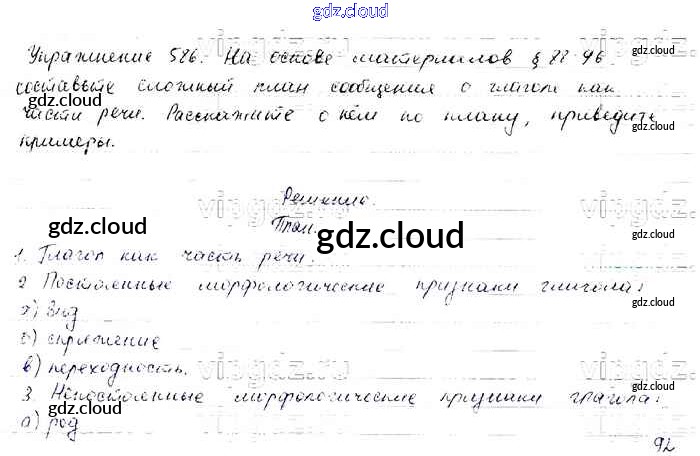 gdz.cloud
Упражнение 586. На основе материалов § 88-96
составьте сложный план сообщения о глаголе как
части речи. Расскажите о нём по плану, приведите
примеры.
Решение.
План.
1. Глагол как часть речи.
2 Постоянные морфологические признаки глагола:
а) вид
б) спряжение
в) переходность.
3. Непостоянные морфологические признаки глагола:
а) род
92
gdz.cloud
gdz.cloud
gdz.cloud
gdz.cloud
gdz.cloud
gdz.cloud
gdz.cloud
gdz.cloud
gdz.cloud